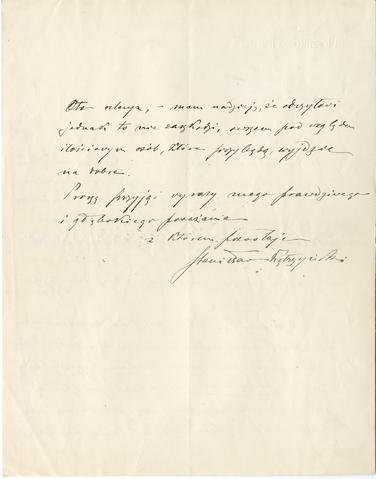 mam nadzieję, że odczytowi
jednak to nie zaszkodzi, owszem pod względem
ilościowym osób, które przybędą, wyjdzie
na dobre.
Proszę przyjąć wyrazy mego prawdziwego
i głębokiego poważania
z którem pozostaję
Stanisław